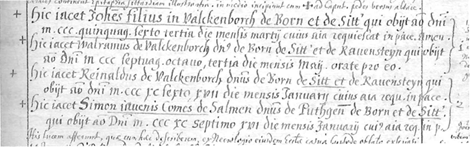 + Hic iacet Johēs filius in Valckenborch de Born et de Sitt' qui obijt aō dn̄i
m. ccc. quinquag. sexto tertia die mensis martij cuius aīa requiescat in pace. Amen.
+ Hic iacet Walramus de Valckenborch dn̄s de Born de Sitt' et de Ravensteyn qui obijt
aō Dn̄i m. ccc septuag. octavo, tertia die mensis Maij. orate pro eo.
+ Hic iacet Reinaldus de Valckenborch dn̄us de Born de Sitt et de Ravensteyn qui
obijt aō dn̄i m. ccc xc sexto xvii die mensis January cuius aīa requ. in pace.
+ Hic iacet Simon iuvenis Comes de Salmen dn̄us de Puthgen̄ de Born et de Sitt'.
qui obijt aō Dn̄i m. ccc xc septimo xvii die mensis Januarij cui' aīa req. in p.